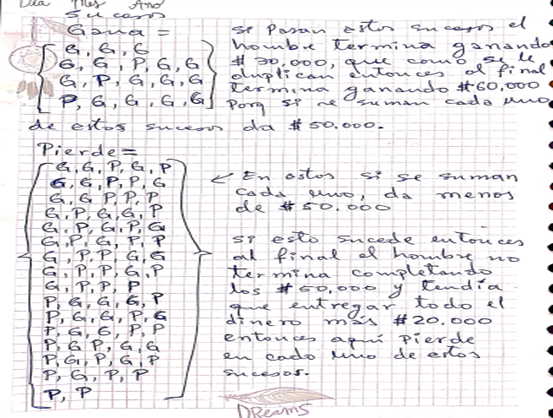 Día Mes Año
Sucesos
Gana =
G, G, G
G, G, P, G, G
G, P, G, G, G
P, G, G, G, G
si pasan estos sucesos el
hombre termina ganando
$30.000, que como se le
duplican entonces al final
termina ganando $60.000
porq si se suman cada uno
de estos sucesos da $50.000.
Pierde =
G, G, P, G, P
G, G, P, P, G
G, G, P, P, P
G, P, G, G, P
G, P, G, P, G
G, P, G, P, P
G, P, P, G, G
G, P, P, G, P
G, P, P, P
P, G, G, G, P
P, G, G, P, G
P, G, G, P, P
P, G, P, G, G
P, G, P, G, P
P, G, P, P
P, P
En estos si se suman
cada uno, da menos
de $50.000
si esto sucede entonces
al final el hombre no
termina completando
los $50.000 y tendía
que entregar todo el
dinero mas $20.000
entonces aquí pierde
en cado uno de estos
sucesos.
DReams